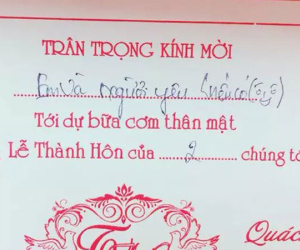 TRÂN TRỌNG KÍNH MỜI
Em và người yêu (nếu có)
Tới dự bữa cơm thân mật
Lễ Thành Hôn của 2 chúng tô
Quác